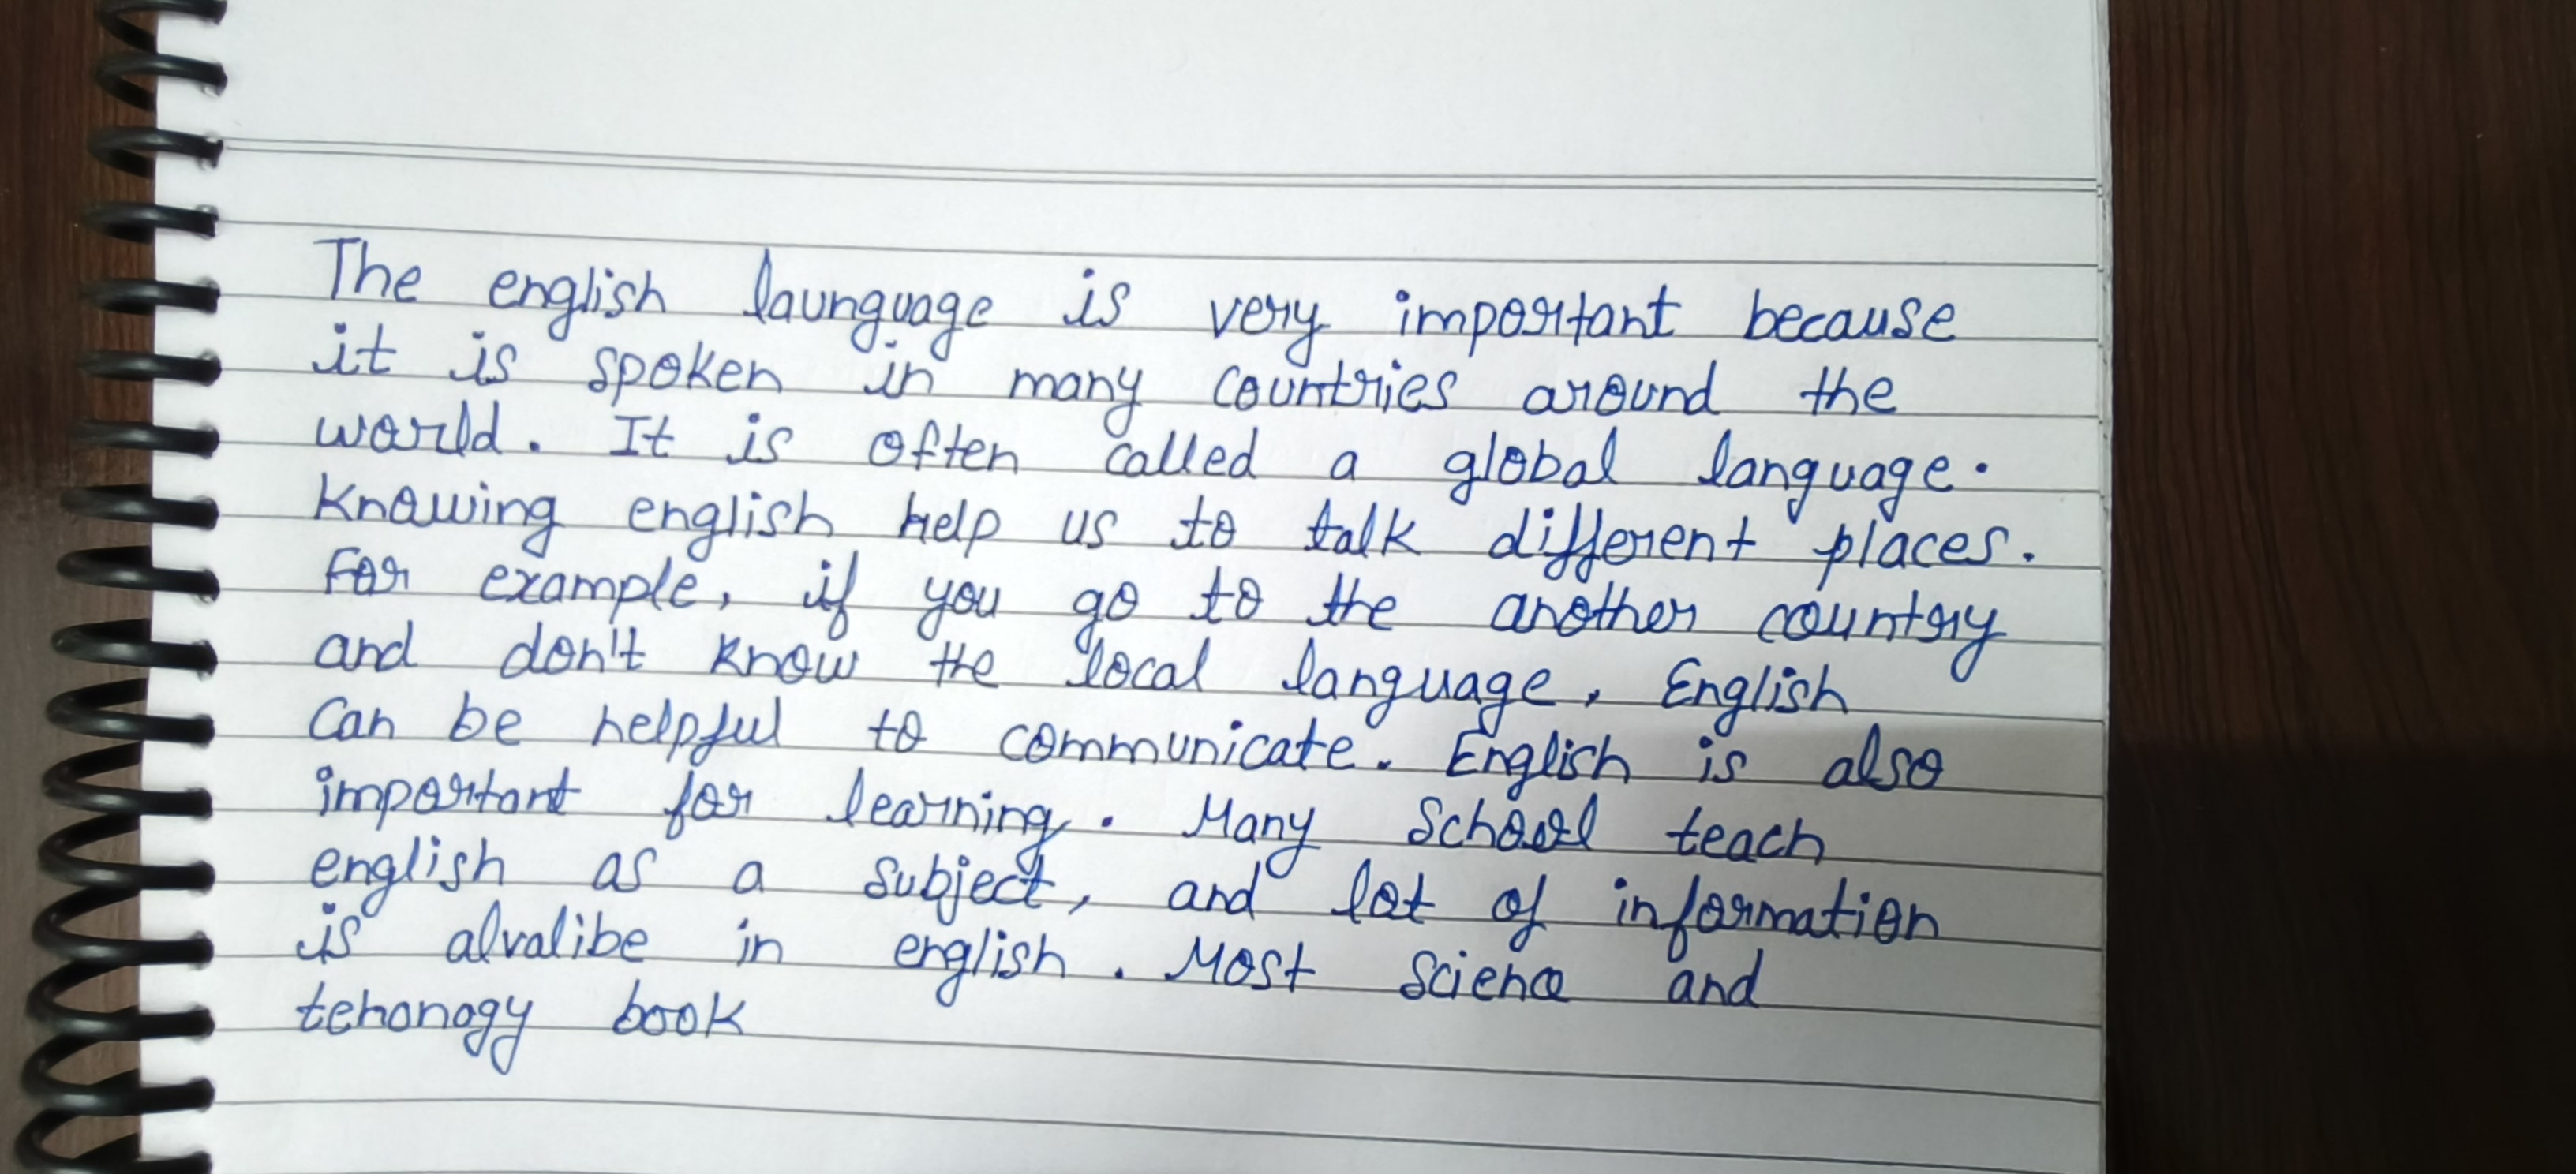 The english launguage is very important because
it is spoken in many countries around the
world. It is often called a global language.
Knowing english help us to talk different places.
For example, if you go to the another country
and don't know the local language, English
can be helpful to communicate. English is also
important for learning. Many School teach
english as a subject, and lot of information
is alvalibe in english. Most Science and
tehonogy book